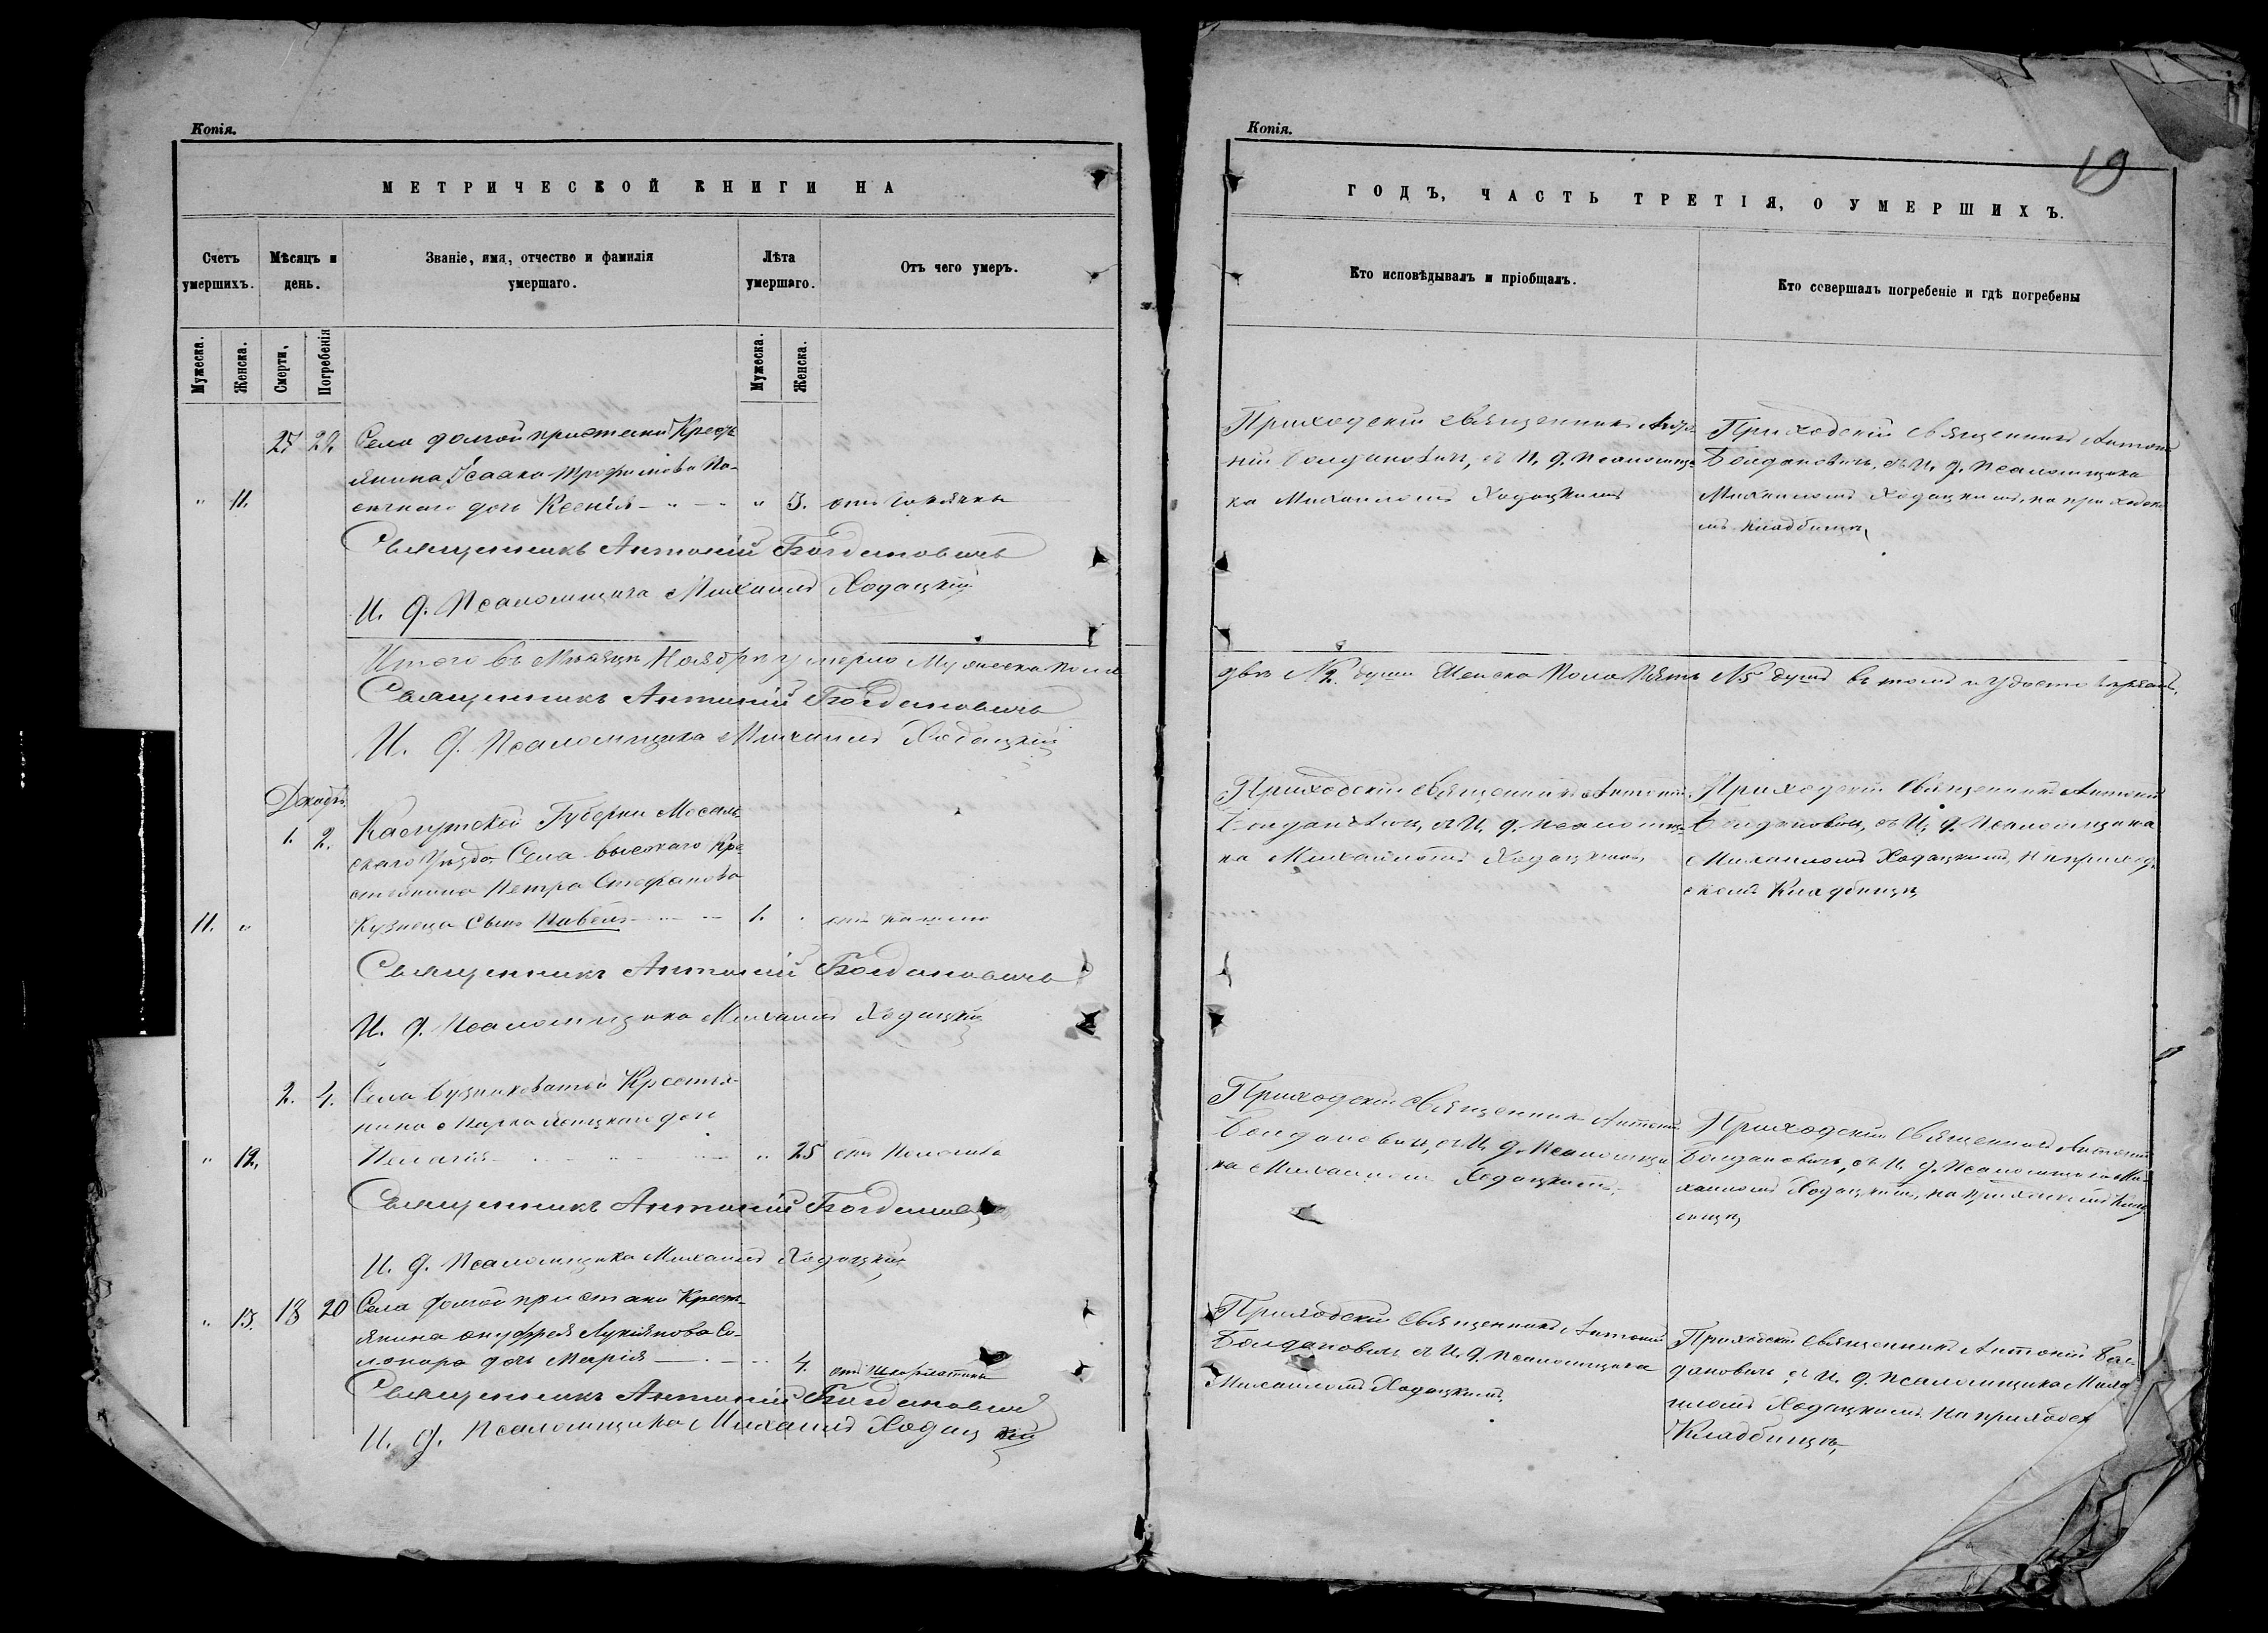 Копія.
МЕТРИЧЕСКОЙ КНИГИ НА
Счетъ умершихъ.
Мѣсяцъ и день.
Званіе, имя, отчество и фамилія умершаго.
Лѣта умершаго.
Отъ чего умеръ.
Мужеска.
Женска.
Смерти,
Погребенія
Мужеска.
Женска.
27 29 Села долгой пристани Кресть
янина Исаака Трофимова
" 11. дочь Ксенія " 3. отъ горячки
Священникъ Антоній Богдановичъ
И. д. Псаломщика Михаилъ Ходацкій
Итого въ Мѣсяцѣ Ноябрѣ умерло Мужеска пола
Священникъ Антоній Богдановичъ
И. д. Псаломщика Михаилъ Ходацкій
Декабрь
1. 2. Калужской Губерніи Мосаль
скаго Уѣзда Села Высокаго Кре
стьянина Петра Стефанова
11. " Кузнеца Сынъ Павелъ 1. " отъ кашлю
Священникъ Антоній Богдановичъ
И. д. Псаломщика Михаилъ Ходацкій
2. 4. Села Бузниковатой Крестья-
нина Марка дочь
" 12. Пелагія " 25 отъ
Священникъ Антоній
И. д. Псаломщика Михаилъ Ходацкій
" 13. 18 20 Села долгой пристани Кресть-
янина Онуфрея Лукіянова
дочь Марія 4. отъ
Священникъ Антоній Богдановичъ
И. д. Псаломщика Михаилъ Ходацкій
Копія.
19
ГОДЪ, ЧАСТЬ ТРЕТІЯ, О УМЕРШИХЪ.
Кто исповѣдывалъ и пріобщалъ.
Кто совершалъ погребеніе и гдѣ погребены
Приходскій священникъ Анто
ній Богдановичъ, съ И. д. Псаломщи
ка Михаиломъ Ходацкимъ
Приходскій Священникъ Антоній
Богдановичъ, съ И. д. Псаломщика
Михаиломъ Ходацкимъ, на приходск
мъ кладбищѣ,
двѣ № 2. души Женска Пола Пять № 5 душъ въ томъ и удостовѣряемъ.
Приходскій священникъ Антоній
Богдановичъ, съ И. д. Псаломщи-
ка Михаиломъ Ходацкимъ,
Приходскій Священникъ Антоній
Богдановичъ, съ И. д. Псаломщика
Михаиломъ Ходацкимъ, На приход
скомъ Кладбищѣ,
Приходскій Священникъ Антоній
Богдановичъ, съ И. д. Псаломщи
ка Михаиломъ Ходацкимъ,
Приходскій Священникъ Антоній
Богдановичъ, съ И. д. Псаломщика Ми-
хаиломъ Ходацкимъ, на приходскомъ Клад
бищѣ,
Приходскій Священникъ Антоній
Богдановичъ съ И. д. Псаломщика
Михаиломъ Ходацкимъ,
Приходскій Священникъ Антоній Бог
дановичъ, съ И. д. Псаломщика Миха
иломъ Ходацкимъ, На приходск
Кладбищѣ,